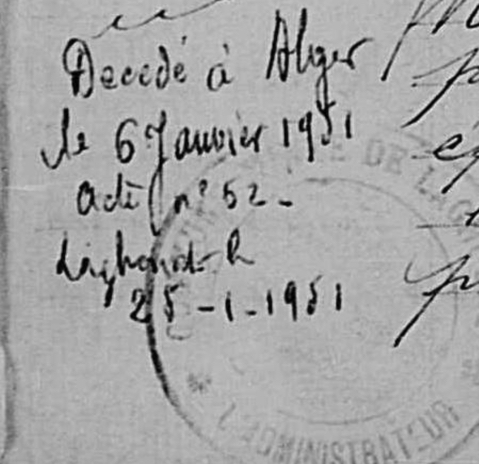 Decedé à Alger
le 6 Janvier 1951
acte n° 52 -
Laghouat le
25 - 1 - 1951
DE LAG
L'ADMINISTRATEUR